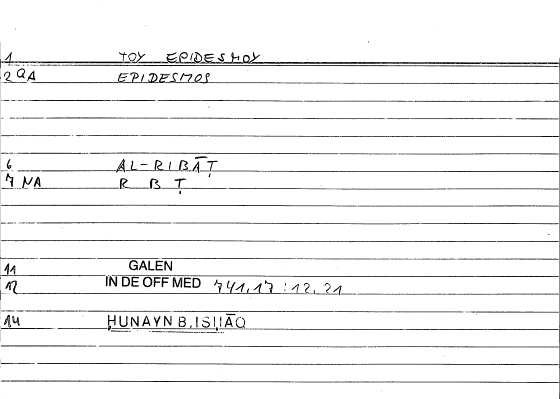 1 TOY EPIDESMOY
2 QA EPIDESMOS
6 AL-RIBĀṬ
7 NA R B Ṭ
11 GALEN
12 IN DE OFF MED 741,17 : 12,21
14 ḤUNAYN B. ISḤĀQ